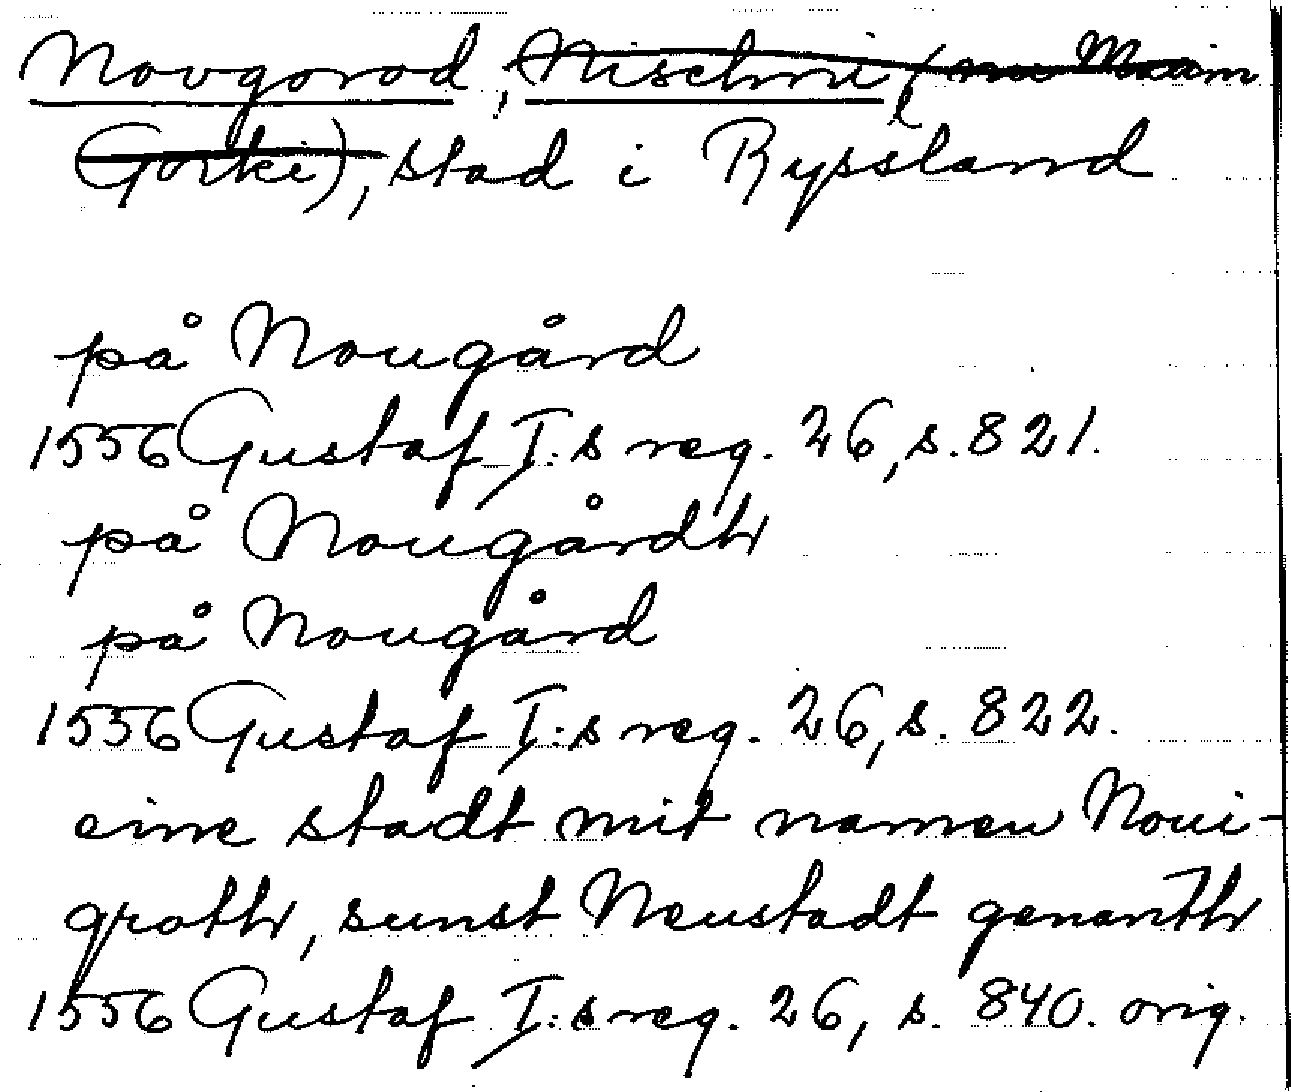 Novgorod, Nischni (nu Maxim
Gorki), stad i Ryssland
på Nougård
1556 Gustaf I:s reg. 26, s. 821.
på Nougårdh
på Nougård
1556 Gustaf I:s reg. 26, s. 822.
eine stadt mit namen Noui-
groth, sunst Neustadt genanth
1556 Gustaf I:s reg. 26, s. 840. orig.